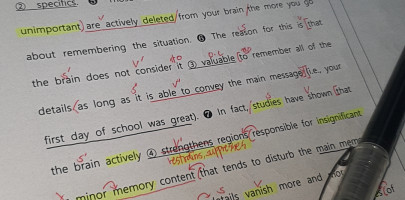 ② specifics. ❺
unimportant) are actively deleted from your brain the more you go
about remembering the situation. ❻ The reason for this is that
the brain does not consider it ③ valuable to remember all of the
details (as long as it is able to convey the main message (i.e., your
first day of school was great). ❼ In fact, studies have shown that
the brain actively ④ strengthens regions responsible for insignificant
restrains, suppresses
minor memory content that tends to disturb the main mem
details vanish more and mor
of